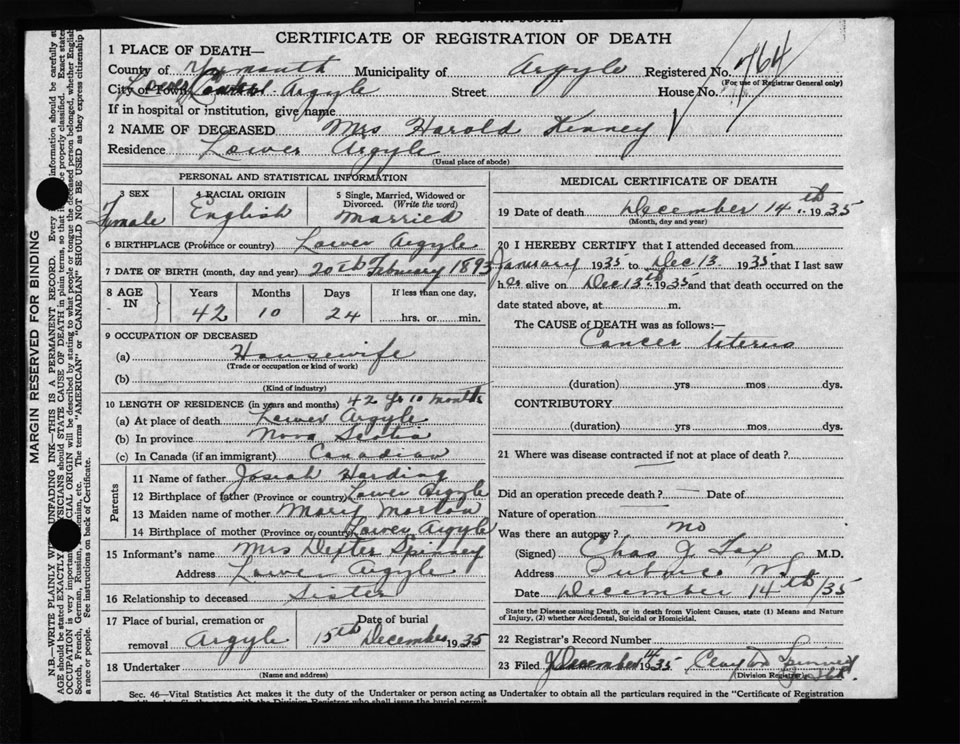 CERTIFICATE OF REGISTRATION OF DEATH
1 PLACE OF DEATH—
County of Yarmouth Municipality of Argyle Registered No. 764
(For use of Registrar General only)
City or Argyle Street House No.
If in hospital or institution, give name
2 NAME OF DECEASED Mrs Harold Kenney
Residence Lower Argyle
(Usual place of abode)
PERSONAL AND STATISTICAL INFORMATION
3 SEX 4 RACIAL ORIGIN 5 Single, Married, Widowed or Divorced. (Write the word)
Female English Married
6 BIRTHPLACE (Province or country) Lower Argyle
7 DATE OF BIRTH (month, day and year) 20th February 1893
8 AGE IN Years Months Days If less than one day,
42 10 24 hrs. or min.
9 OCCUPATION OF DECEASED
(a) Housewife
(Trade or occupation or kind of work)
(b)
(Kind of industry)
10 LENGTH OF RESIDENCE (in years and months) 42 yr 10 months
(a) At place of death Lower Argyle
(b) In province Nova Scotia
(c) In Canada (if an immigrant) Canadian
Parents
11 Name of father Josiah Harding
12 Birthplace of father (Province or country) Lower Argyle
13 Maiden name of mother Mary Morton
14 Birthplace of mother (Province or country) Lower Argyle
15 Informant's name Mrs Dexter Spinney
Address Lower Argyle
16 Relationship to deceased Sister
17 Place of burial, cremation or removal Argyle Date of burial 15th December 1935
18 Undertaker
(Name and address)
MEDICAL CERTIFICATE OF DEATH
19 Date of death December 14th 1935
(Month, day and year)
20 I HEREBY CERTIFY that I attended deceased from
January 1935 to Dec 13 1935 that I last saw
her alive on Dec 13th 1935 and that death occurred on the
date stated above, at m.
The CAUSE of DEATH was as follows:—
Cancer Uterus
(duration) yrs mos dys.
CONTRIBUTORY
(duration) yrs. mos. dys.
21 Where was disease contracted if not at place of death?
Did an operation precede death? — Date of
Nature of operation
Was there an autopsy? no
(Signed) Chas J. Fox M.D.
Address Pubnico NS
Date December 14th/35
State the Disease causing Death, or in death from Violent Causes, state (1) Means and Nature
of Injury, (2) whether Accidental, Suicidal or Homicidal.
22 Registrar's Record Number
23 Filed December 14 1935 Clayton Spinney
(Division Registrar)
Sec. 46—Vital Statistics Act makes it the duty of the Undertaker or person acting as Undertaker to obtain all the particulars required in the "Certificate of Registration
MARGIN RESERVED FOR BINDING
N.B.—WRITE PLAINLY UNFADING INK—THIS IS A PERMANENT RECORD. Every information should be carefully
AGE should be stated EXACTLY. should STATE CAUSE OF DEATH in plain terms, so that be properly classified. Exact
OCCUPATION is very important. ORIGIN will be described by stating to what people or tongue the deceased person belonged, whether English,
Scotch, French, German, Russian, etc. The terms "AMERICAN" or "CANADIAN" SHOULD NOT BE USED as they express citizenship
a race or people. See instructions on back of Certificate.